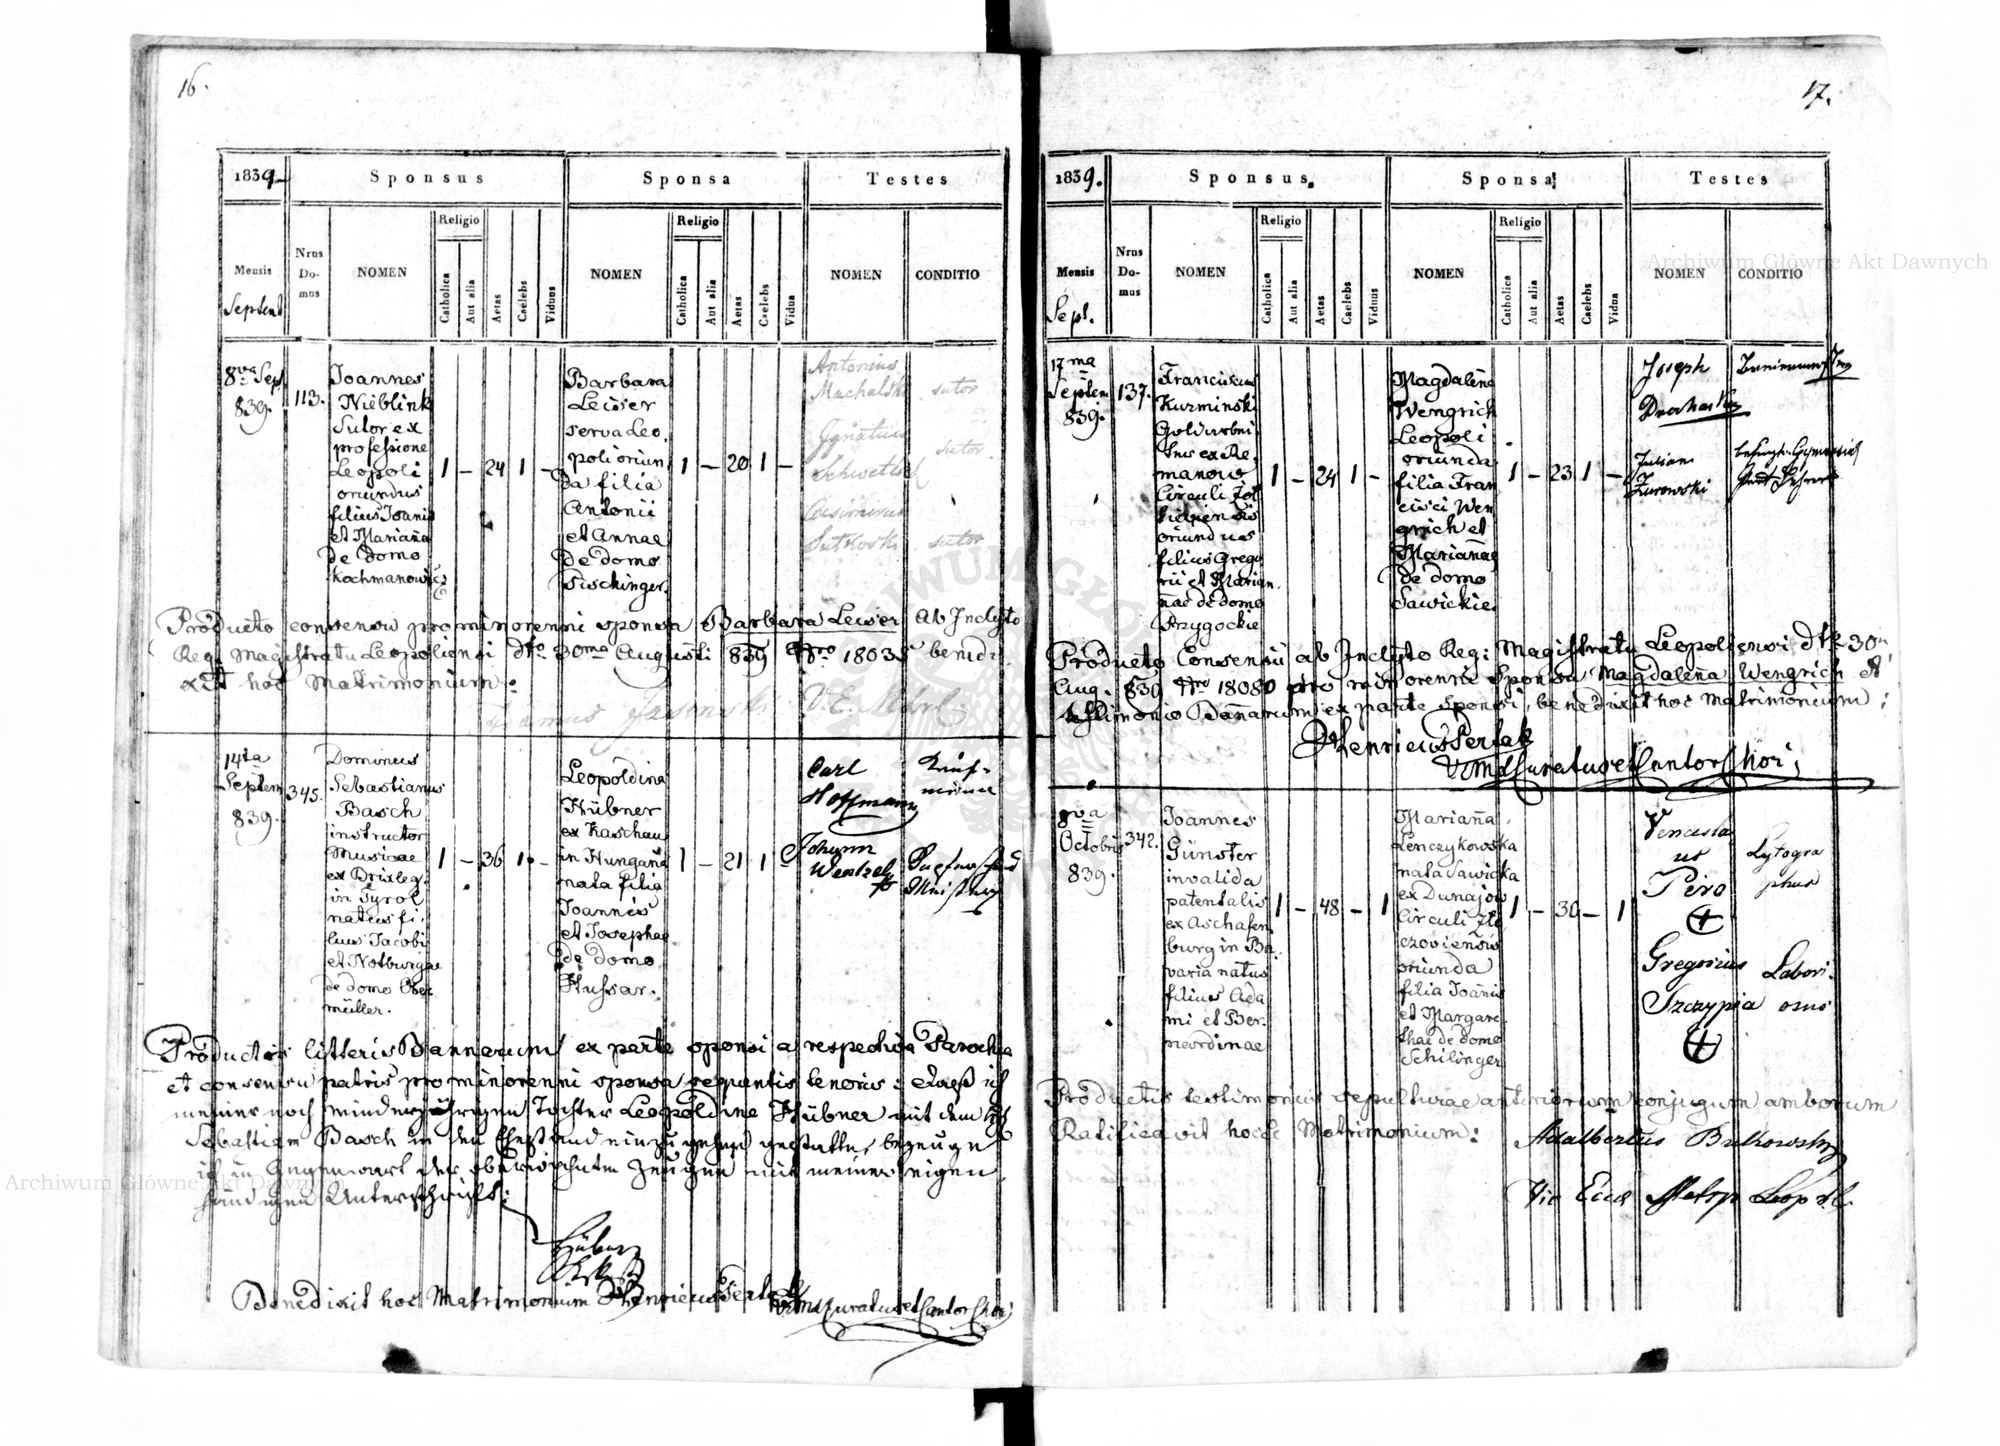 16.
1839.
Sponsus
Sponsa
Testes
Religio
Religio
Mensis
Septemb
Nrus
Do-
mus
NOMEN
Catholica
Aut alia
Aetas
Caelebs
Viduus
NOMEN
Catholica
Aut alia
Aetas
Caelebs
Vidua
NOMEN
CONDITIO
8va Sept
839.
113.
Joannes
Nieblink
Sutor ex
professione
Leopoli
oriundus
filius Joanis
et Mariana
de domo
Kochmanowicz
1 — 24 1 —
Barbara
Leiser
serva Leo.
poli oriun
da filia
Antonii
et Annae
de domo
Fischinger.
1 — 20 1 —
Antonius
Machalski
sutor
Ignatius
sutor
Casimirus
Sutkoski
sutor
Producto consensu pro minorenni sponsa Barbara Leiser ab Inclyto
Reg. Magistratu Leopoliensi dto 30ma Augusti 839 Nro 18035 benedi
xit hoc Matrimonium.
14ta
Septem
839.
345.
Dominus
Sebastianus
Basch
instructor
Musicae
ex Brixleg.
in Tyrol
natus fi.
lius Jacobi
et Notburgae
de domo Ober
müller.
1 — 36 1 —
Leopoldina
Hübner
ex Kaschau
in Hungaria
nata filia
Joannis
et Josephae
de domo
Hussar.
1 — 21 1 —
Carl
Hoffmann
Johann
Wentzel
Productis litteris Bannarum ex parte sponsi a respectiva Parochia
et consensu patris pro minorenni sponsa sequentis tenoris: Daß ich
meiner noch minderjährigen Tochter Leopoldine Hübner mit dem H
Sebastian Basch in den Ehestand einzugehen gestatte, bezeuge
ich in Gegenwart der Zeugen mit meiner eigen
händigen Unterschrift:
Benedixit hoc Matrimonium Henricus Serfak
Curatus et Cantor Chori
17.
1839.
Sponsus
Sponsa
Testes
Religio
Religio
Mensis
Sept.
Nrus
Do-
mus
NOMEN
Catholica
Aut alia
Aetas
Caelebs
Viduus
NOMEN
Catholica
Aut alia
Aetas
Caelebs
Vidua
NOMEN
CONDITIO
17ma
Septem
839.
137.
Franciscus
Kuzminski
ex Ro
manow
Circuli
oriundus
filius Grego
rii et Marian
nae de domo
Przygockie
1 — 24 1 —
Magdalena
Wengrich
Leopoli
oriunda
filia Fran
cisci Wen
grich et
Marianae
de domo
Sawickie
1 — 23 1 —
Joseph
Julian
Zurowski
Producto Consensu ab Inclyto Reg: Magistratu Leopoliensi dto 30
Aug. 839 Nro 18080 pro minorenni Sponsa Magdalena Wengrich et
testimonio Banarum ex parte Sponsi, benedixit hoc Matrimonium:
Henricus Serfak
Curatus et Cantor Chori
8va
Octobris
839.
342.
Joannes
Günster
invalida
patentalis
ex Aschafen
burg in Ba.
varia natus
filius Ada
mi et Ber.
nardinae
1 — 48 — 1
Mariana
Lenczykowska
nata Sawicka
ex Dunajow
Circuli Zlo
czoviensis
oriunda
filia Joanis
et Margare
thae de domo
Schilinger
1 — 30 — 1
Vencesla
us
Piro
Lytogra
phus
Gregorius
Szczypia
Labori.
osus
Productis testimoniis sepulturae anteriorum conjugum amborum
Ratificavit hocce Matrimonium:
Adalbertus Bulkowsky
Archiwum Główne Akt Dawnych
Archiwum Główne Akt Dawnych